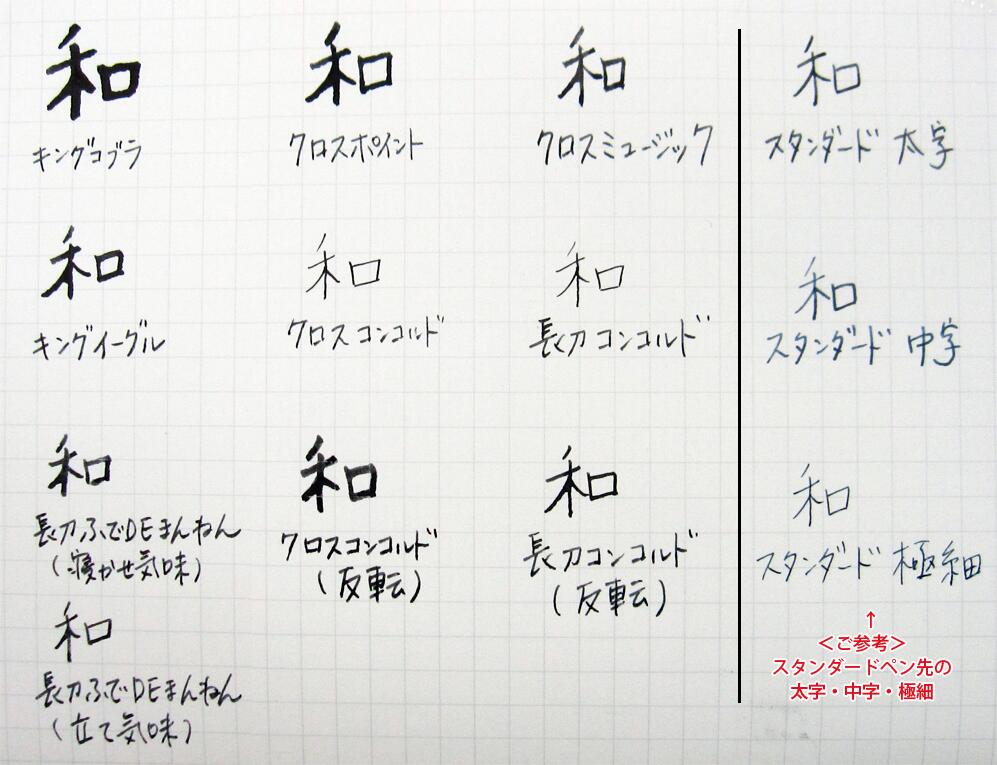 和
キングコブラ
和
クロスポイント
和
クロスミュージック
和
スタンダード 太字
和
キングイーグル
和
クロスコンコルド
和
長刀コンコルド
和
スタンダード 中字
和
長刀ふでDEまんねん
(寝かせ気味)
和
クロスコンコルド
(反転)
和
長刀コンコルド
(反転)
和
スタンダード 極細
和
長刀ふでDEまんねん
(立て気味)
↑
＜ご参考＞
スタンダードペン先の
太字・中字・極細